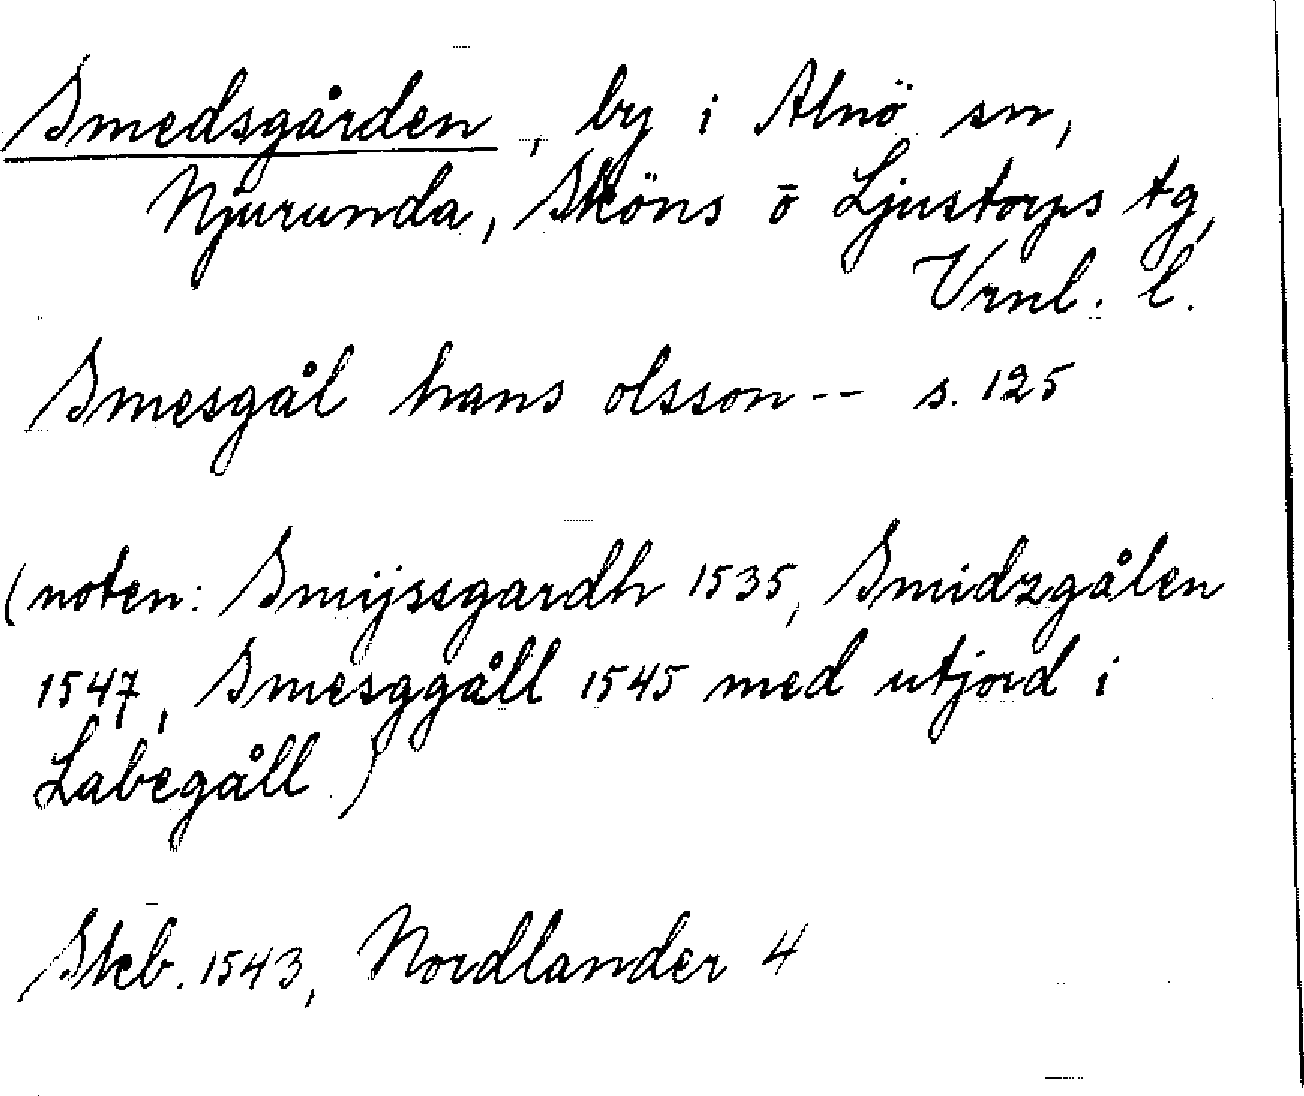 Smedsgården, by i Alnö sn,
Njurunda, Sköns ō Ljustorps tg,
Vrnl. l.
Smesgål hans olsson -- s. 125
(noten: Smijssgardh 1535, Smidzgålen
1547, Smesggåll 1545 med utjord i
Labegåll.)
Skb. 1543, Nordlander 4